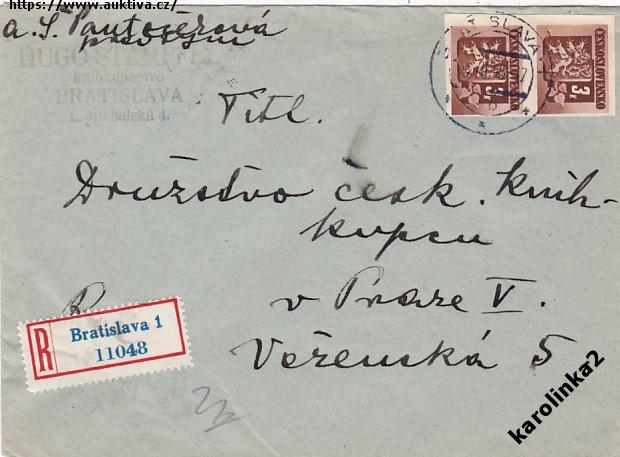 https://www.auktiva.cz/
a. Š. Pantočková
HUGO STAMPFEL
kníhkupectvo
BRATISLAVA
L. Michalská 4.
BRATISLAVA
ČESKOSLOVENSKO
3
ČESKOSLOVENSKO
3
Titl.
Družstvo česk. knih-
kupcu
v Praze V.
Vězenská 5
R
R
Bratislava 1
11048
karolinka2